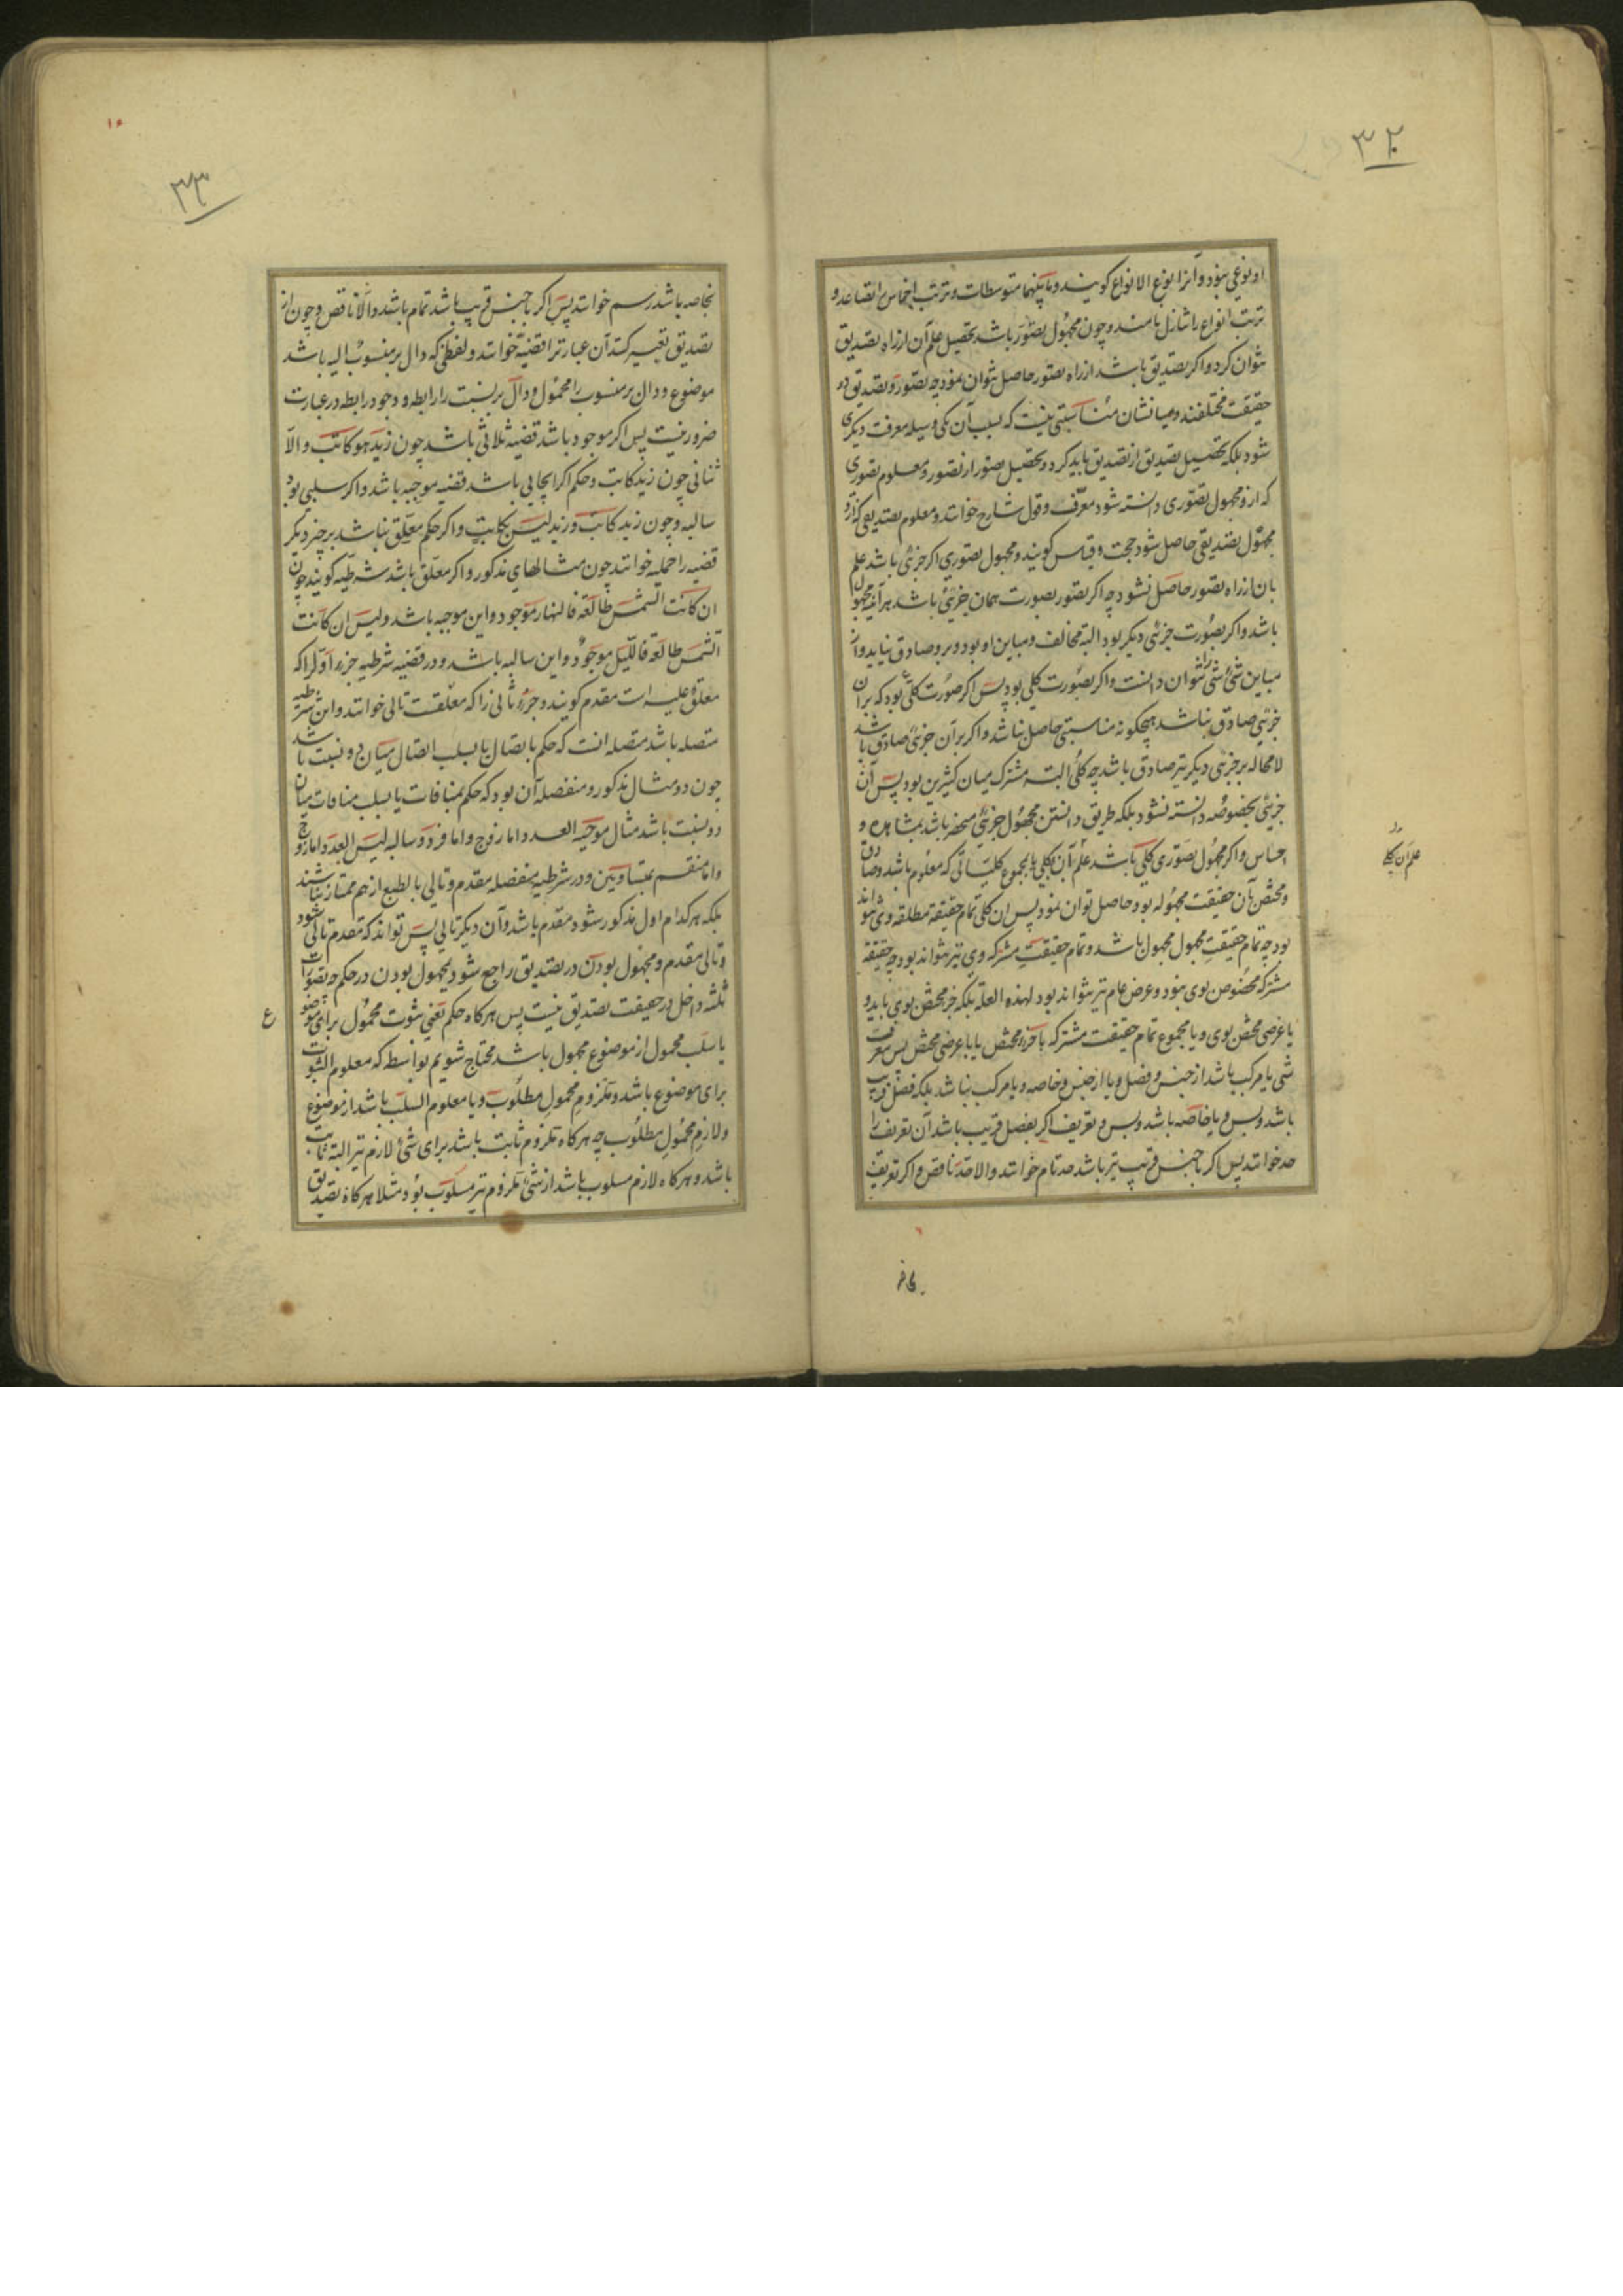 ۳۲
او نوعی نبود و آنرا نوع الانواع کویند و مابینهما متوسطات و ترتب اجناس را تصاعد و
ترتب انواع را تنازل نامند و چون مجهول تصور باشد تحصیل علم آن از راه تصدیق
نتوان کرد و اکر تصدیق باشد از راه تصور حاصل نتوان نمود چه تصور و تصدیق دو
حقیقت مختلفند و میانشان مناسبتی نیست که بسبب آن یکی وسیله معرفت دیکری
شود بلکه تحصیل تصدیق از تصدیق باید کرد و تحصیل تصور از تصور و معلوم تصوری
که ازو مجهول تصوری دانسته شود معرّف و قول شارح خوانند و معلوم تصدیقی که ازو
مجهول تصدیقی حاصل شود حجت و قیاس کویند و مجهول تصوری اکر جزئی باشد علم
بان از راه تصور حاصل نشود چه اکر تصور بصورت همان جزئی باشد هر آینه مجهول
باشد و اکر بصورت جزئی دیکر بود البته مخالف و مباین او بود و برو صادق نیاید و از
مباین شئ شئ را نتوان دانست و اکر بصورت کلی بود پس اکر صورت کلی بود که بران
جزئی صادق نباشد هیچکونه مناسبتی حاصل نباشد و اکر بر آن جزئی صادق باشد
لامحاله بر جزئی دیکر نیز صادق باشد چه کلی البته مشترک میان کثیرین بود پس آن
جزئی بخصوصه دانسته نشود بلکه طریق دانستن مجهول جزئی منحصر باشد بمشاهده و
احساس و اکر مجهول تصوری کلی باشد علم آن بکلی یا بمجموع کلیاتی که معلوم باشد و صادق
و مختص بآن حقیقت مجهوله بود حاصل توان نمود پس ان کلی تمام حقیقة مطلقه وی نتواند
بود چه تمام حقیقت مجهول مجهول باشد و تمام حقیقت مشترکه وی نیز نتواند بود چه حقیقة
مشترکه مخصوص بوی نبود و عرض عام نیز نتواند بود لهذه العلة بلکه جزء مختص بوی باید و
یا عرضی مختص بوی و یا مجموع تمام حقیقت مشترکه با جزء مختص یا با عرضی مختص پس معرف
شی یا مرکب باشد از جنس و فصل و یا از جنس و خاصه و یا مرکب نباشد بلکه فصل قریب
باشد و بس و یا خاصه باشد و بس و تعریف اکر بفصل قریب باشد آن تعریف را
حد خوانند پس اکر با جنس قریب نیز باشد حد تام خوانند والا حد ناقص و اکر تعریف
علم آن بکلی
۱۶
۳۳
بخاصه باشد رسم خوانند پس اکر با جنس قریب باشد تمام باشد والا ناقص و چون از
تصدیق تعبیر کنند آن عبارترا قضیه خوانند و لفظی که دال بر منسوب الیه باشد
موضوع و دال بر منسوب را محمول و دالّ بر نسبت را رابطه و وجود رابطه در عبارت
ضرور نیست پس اکر موجود باشد قضیه ثلاثی باشد چون زید هو کاتب و الّا
ثنائی چون زید کاتب و حکم اکر ایجابی باشد قضیه موجبه باشد و اکر سلبی بود
سالبه و چون زید کاتب و زید لیس بکاتب و اکر حکم معلّق نباشد بر چیز دیکر
قضیه را حملیه خوانند چون مثالهای مذکور و اکر معلّق باشد شرطیّه کویند چون
ان کانت الشمس طالعة فالنهار موجود و این موجبه باشد و لیس ان کانت
الشمس طالعة فاللیل موجود و این سالبه باشد و در قضیه شرطیه جزء اوّل را که
معلّق علیه است مقدم کویند و جزء ثانی را که معلقست تالی خوانند و این شرطیه
متصله باشد متصله انست که حکم باتصال یا بسلب اتصال میان دو نسبت باشد
چون دو مثال مذکور و منفصله آن بود که حکم بمنافات یا بسلب منافات میان
دو نسبت باشد مثال موجبه العدد اما زوج و اما فرد و سالبه لیس العدد اما زوج
و اما منقسم بمتساویین و در شرطیه منفصله مقدم و تالی بالطبع از هم ممتاز نباشند
بلکه هر کدام اول مذکور شود مقدم باشد و آن دیکر تالی پس تواند که مقدم تالی شود
و تالی مقدم و مجهول بودن در تصدیق راجع شود بمجهول بودن در حکم چه تصورات
ثلثه داخل در حقیقت تصدیق نیست پس هرکاه حکم یعنی ثبوت محمول برای موضوع
یا سلب محمول از موضوع مجهول باشد محتاج شویم بواسطه که معلوم الثبوت
برای موضوع باشد و ملزوم محمول مطلوب و یا معلوم السلب باشد از موضوع
و لازم محمول مطلوب چه هرکاه ملزوم ثابت باشد برای شئ لازم نیز البته ثابت
باشد و هرکاه لازم مسلوب باشد از شئ ملزوم نیز مسلوب بود مثلا هرکاه تصدیق
ع